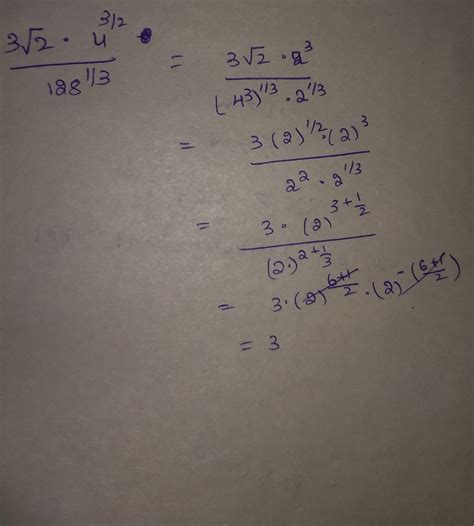 3√2 · 4^{3/2} / 128^{1/3} = 3√2 · 2^3 / (4^3)^{1/3} · 2^{1/3}
= 3 · (2)^{1/2} · (2)^3 / 2^2 · 2^{1/3}
= 3 · (2)^{3+1/2} / (2·)^{2+1/3}
= 3 · (2)^{6+1/2} · (2)^{-(6+1/2)}
= 3